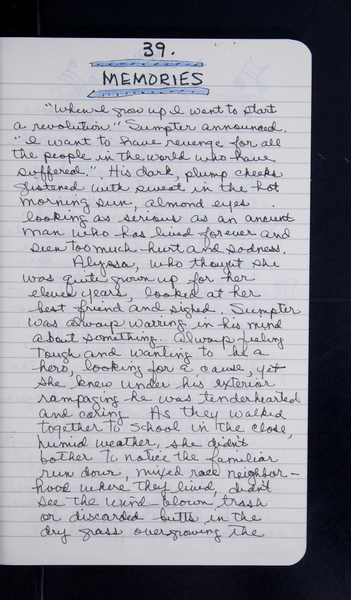 39.
MEMORIES
"When I grow up I want to start
a revolution." Sumpter announced.
"I want to have revenge for all
the people in the world who have
suffered." His dark, plump cheeks
glistened with sweat in the hot
morning sun, almond eyes
looking as serious as an ancient
man who has lived forever and
seen too much hurt and sadness.
Alyssa, who thought she
was quite grown up for her
eleven years, looked at her
best friend and sighed. Sumpter
was always warring in his mind
about something. Always feeling
tough and wanting to be a
hero, looking for a cause, yet
she knew under his exterior
rampaging he was tenderhearted
and caring. As they walked
together to school in the close,
humid weather, she didn't
bother to notice the familiar
run down, mixed race neighbor-
hood where they lived, didn't
see the wind-blown trash
or discarded butts in the
dry grass overgrowing the